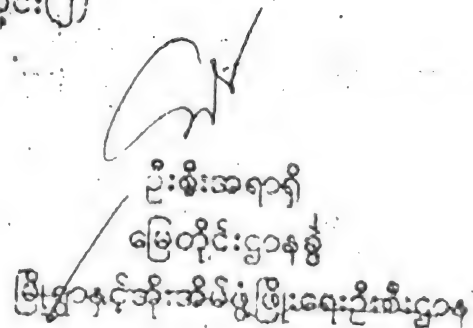 ဦးစီးအရာရှိ
မြေတိုင်းဌာနခွဲ
မြို့ရွာနှင့်အိုးအိမ်ဖွံ့ဖြိုးရေးဦးစီးဌာန